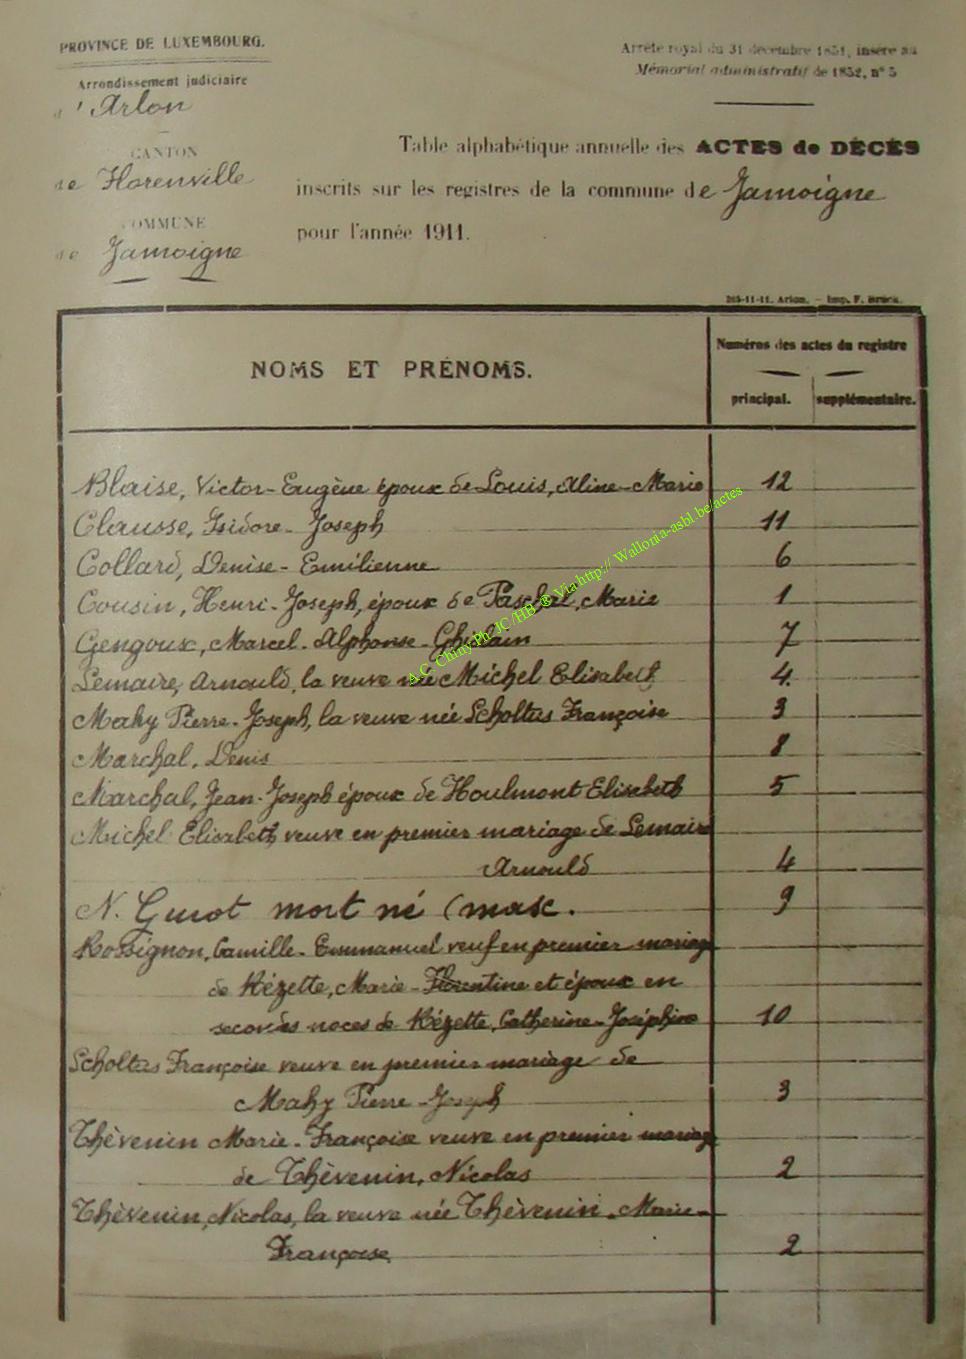 PROVINCE DE LUXEMBOURG.
Arrondissement judiciaire
d'Arlon
CANTON
de Florenville
COMMUNE
de Jamoigne
Arrêté royal du 31 décembre 1851, inséré au
Mémorial administratif de 1852, n° 5
Table alphabétique annuelle des ACTES de DÉCÈS
inscrits sur les registres de la commune de Jamoigne
pour l'année 1911.
265-11-11. Arlon. — Imp. F. Brück.
NOMS ET PRÉNOMS.
Numéros des actes du registre
principal. supplémentaire.
Blaise, Victor-Eugène époux de Louis, Aline-Marie 12
Clausse, Isidore-Joseph 11
Collard, Denise-Emilienne 6
Cousin, Henri-Joseph, époux de Paschal, Marie 1
Gengoux, Marcel-Alphonse-Ghislain 7
Lemaire, Arnould, la veuve née Michel Elisabeth 4.
Mahy Pierre-Joseph, la veuve née Scholtus Françoise 3
Marchal, Denis 8
Marchal, Jean-Joseph époux de Houlmont Elisabeth 5
Michel Elisabeth veuve en premier mariage de Lemaire
Arnould 4
N. Guiot mort né (masc. 9
Rossignon, Camille-Emmanuel veuf en premier mariage
de Rézette, Marie-Florentine et époux en
secondes noces de Rézette, Catherine-Joséphine 10
Scholtus Françoise veuve en premier mariage de
Mahy Pierre-Joseph 3
Thèvenin Marie-Françoise veuve en premier mariage
de Thèvenin, Nicolas 2
Thèvenin, Nicolas, la veuve née Thèvenin-Marie-
Françoise 2
A.C. Chiny Ph JC/HB ® Via http:// Wallonia-asbl.be/actes